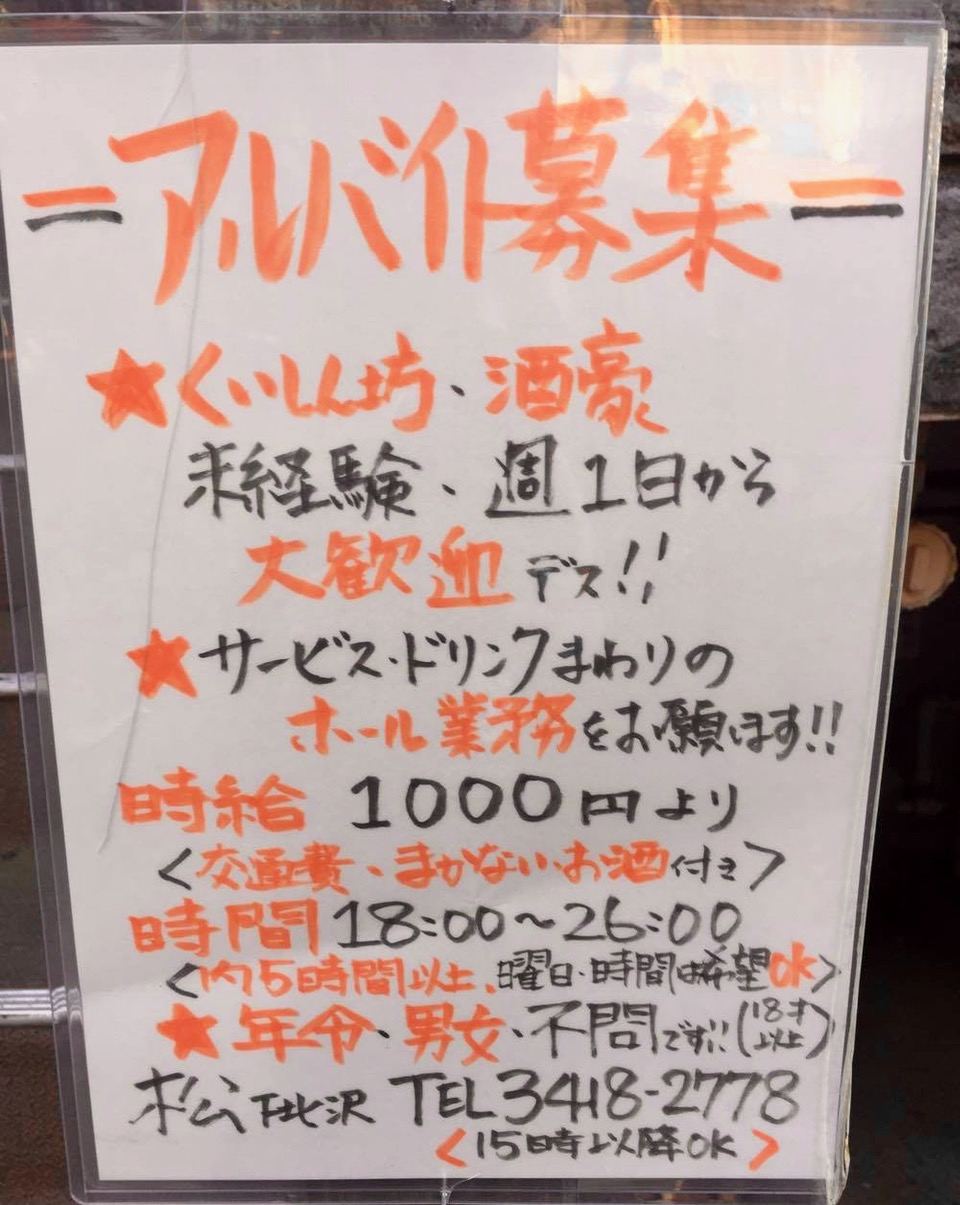 =アルバイト募集=
★くいしん坊、酒豪
未経験、週1日から
大歓迎デス!!
★サービス・ドリンクまわりの
ホール業務をお願します!!
時給 1000円より
<交通費・まかない・お酒付き>
時間 18:00~26:00
<内5時間以上、曜日・時間は希望OK>
★年令・男女・不問です!!(18才以上)
松 下北沢 TEL3418-2778
<15時以降OK>